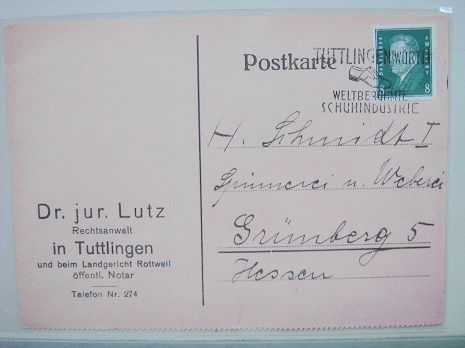 Postkarte
TUTTLINGEN (WÜRTT)
WELTBERÜHMTE
SCHUHINDUSTRIE
8
H. Schmidt I
Spinnerei u. Weberei
Grünberg 5
Hessen
Dr. jur. Lutz
Rechtsanwalt
in Tuttlingen
und beim Landgericht Rottweil
öffentl. Notar
Telefon Nr. 274